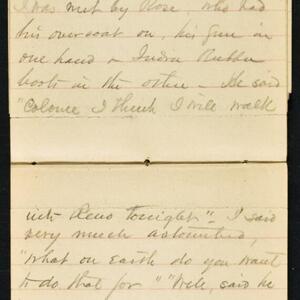 I was met by Rose, who had
his overcoat on, his gun in
one hand & India Rubber
boots in the other - He said
"Colonel I think I will walk
into Reno tonight". I said
very much astounded,
"What on Earth do you want
to do that for" "Well, said he